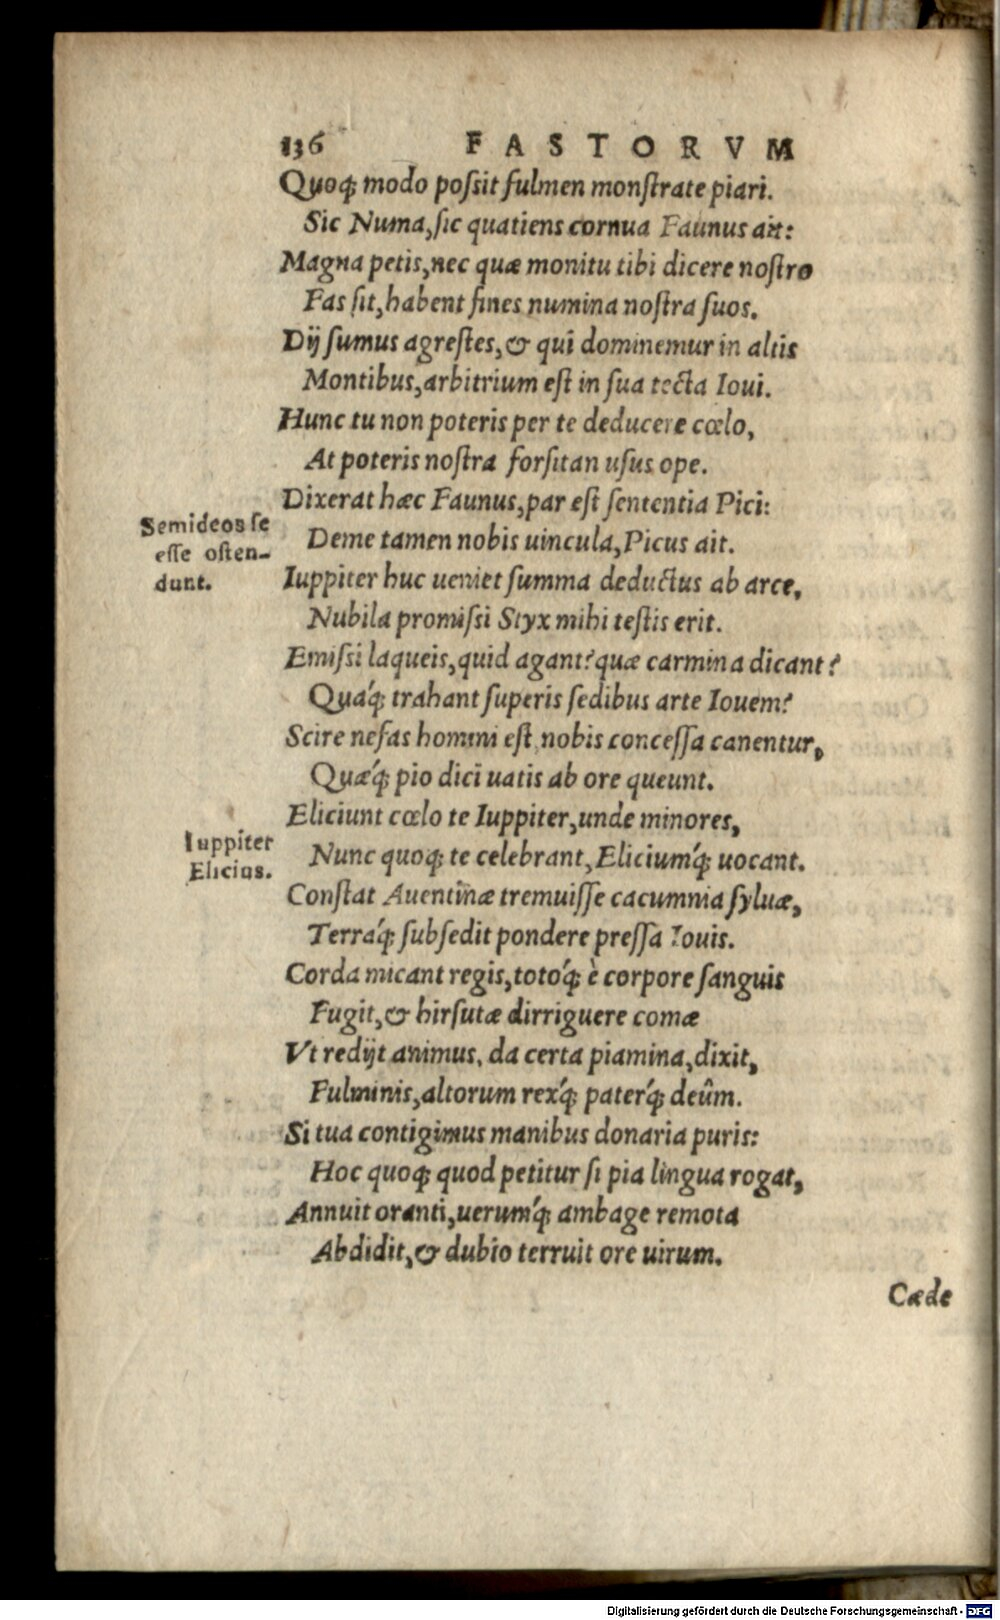 136 FASTORVM
Quoq; modo poſsit fulmen monſtrate piari.
Sic Numa,ſic quatiens cornua Faunus ait:
Magna petis,nec quæ monitu tibi dicere noſtro
Fas ſit,habent fines numina noſtra ſuos.
Dij ſumus agreſtes,& qui dominemur in altis
Montibus,arbitrium eſt in ſua tecta Ioui.
Hunc tu non poteris per te deducere cœlo,
At poteris noſtra forſitan uſus ope.
Dixerat hæc Faunus,par eſt ſententia Pici:
Semideos ſe
eſſe oſten-
dunt.
Deme tamen nobis uincula,Picus ait.
Iuppiter huc ueniet ſumma deductus ab arce,
Nubila promiſsi Styx mihi teſtis erit.
Emiſsi laqueis,quid agant?quæ carmina dicant?
Quáq́; trahant ſuperis ſedibus arte Iouem?
Scire nefas homini eſt,nobis conceſſa canentur,
Quæq́; pio dici uatis ab ore queunt.
Eliciunt cœlo te Iuppiter,unde minores,
Iuppiter
Elicius.
Nunc quoq; te celebrant,Eliciumq́; uocant.
Conſtat Auentinæ tremuiſſe cacumnia ſyluæ,
Terráq́; ſubſedit pondere preſſa Iouis.
Corda micant regis,totoq́; è corpore ſanguis
Fugit,& hirſutæ dirriguere comæ
Vt redijt animus, da certa piamina,dixit,
Fulminis,altorum rexq́; paterq́; deûm.
Si tua contigimus manibus donaria puris:
Hoc quoq; quod petitur ſi pia lingua rogat,
Annuit oranti,uerumq́; ambage remota
Abdidit,& dubio terruit ore uirum.
Cæde
Digitalisierung gefördert durch die Deutsche Forschungsgemeinschaft - DFG